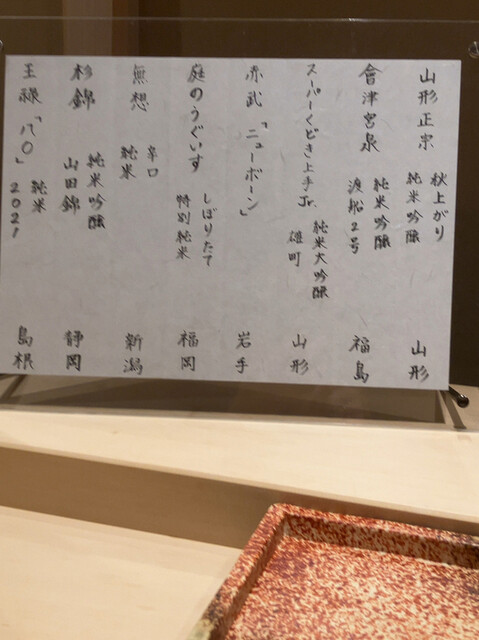 山形正宗 秋上がり 純米吟醸 山形
會津宮泉 純米吟醸 渡船2号 福島
スーパーくどき上手Jr. 純米大吟醸 雄町 山形
赤武「ニューボーン」 岩手
庭のうぐいす しぼりたて 特別純米 福岡
無想 辛口 純米 新潟
杉錦 純米吟醸 山田錦 静岡
王祿「八〇」 純米 2021 島根